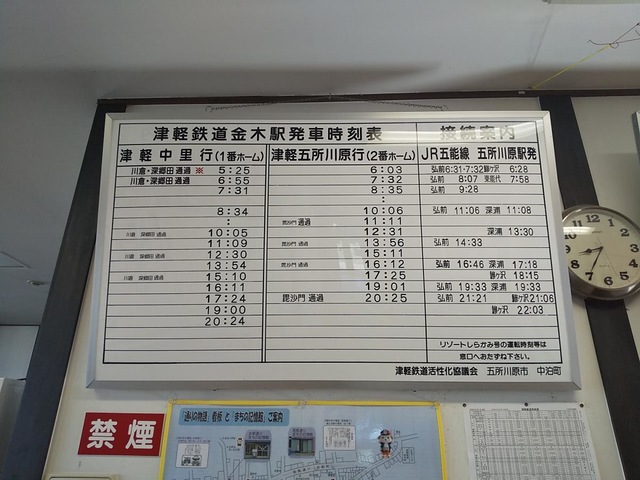 津軽鉄道金木駅発車時刻表
接続案内
津軽中里行(1番ホーム)
津軽五所川原行(2番ホーム)
JR五能線 五所川原駅発
川倉・深郷田 通過 ※ 5:25
川倉・深郷田 通過 6:55
7:31
:
8:34
:
川倉 深郷田 通過 10:05
11:09
川倉 深郷田 通過 12:30
13:54
川倉 深郷田 通過 15:10
16:11
17:24
19:00
20:24
6:03
7:32
8:35
:
10:06
毘沙門 通過 11:11
12:31
毘沙門 通過 13:56
15:11
毘沙門 通過 16:12
17:25
19:01
毘沙門 通過 20:25
弘前 6:31-7:32 鰺ケ沢 6:28
弘前 8:07 東能代 7:58
弘前 9:28
弘前 11:06 深浦 11:08
深浦 13:30
弘前 14:33
弘前 16:46 深浦 17:18
鰺ケ沢 18:15
弘前 19:33 深浦 19:33
弘前 21:21 鰺ケ沢 21:06
鰺ケ沢 22:03
リゾートしらかみ号の運転時刻等は
窓口へおたずね下さい。
津軽鉄道活性化協議会 五所川原市 中泊町
12 1 2 3 4 5 6 7 8 9 10 11
禁煙
「通りの物語」看板 と 「まちの記憶館」ご案内